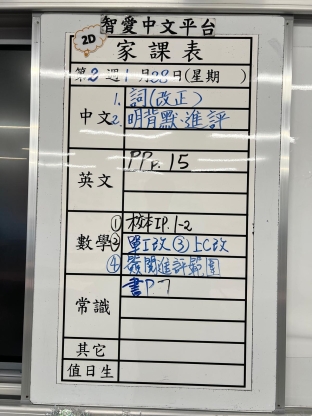 智愛中文平台
2D
家課表
第2週1月28日(星期 )
中文
1. 詞(改正)
2. 明背默.進評
英文
PP p. 15
數學
① 校本IP. 1-2
② 單I改 ③ 上C改
④ 簽閱進評範圍
常識
書P7
其它
值日生